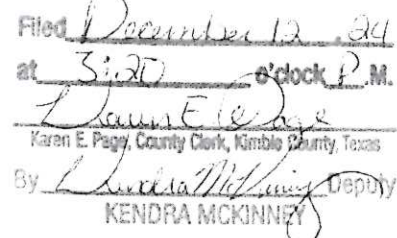 Filed December 12, 24
at 3:20 o'clock P.M.
Karen E. Page, County Clerk, Kimble County, Texas
By Kendra McKinney Deputy
KENDRA MCKINNEY